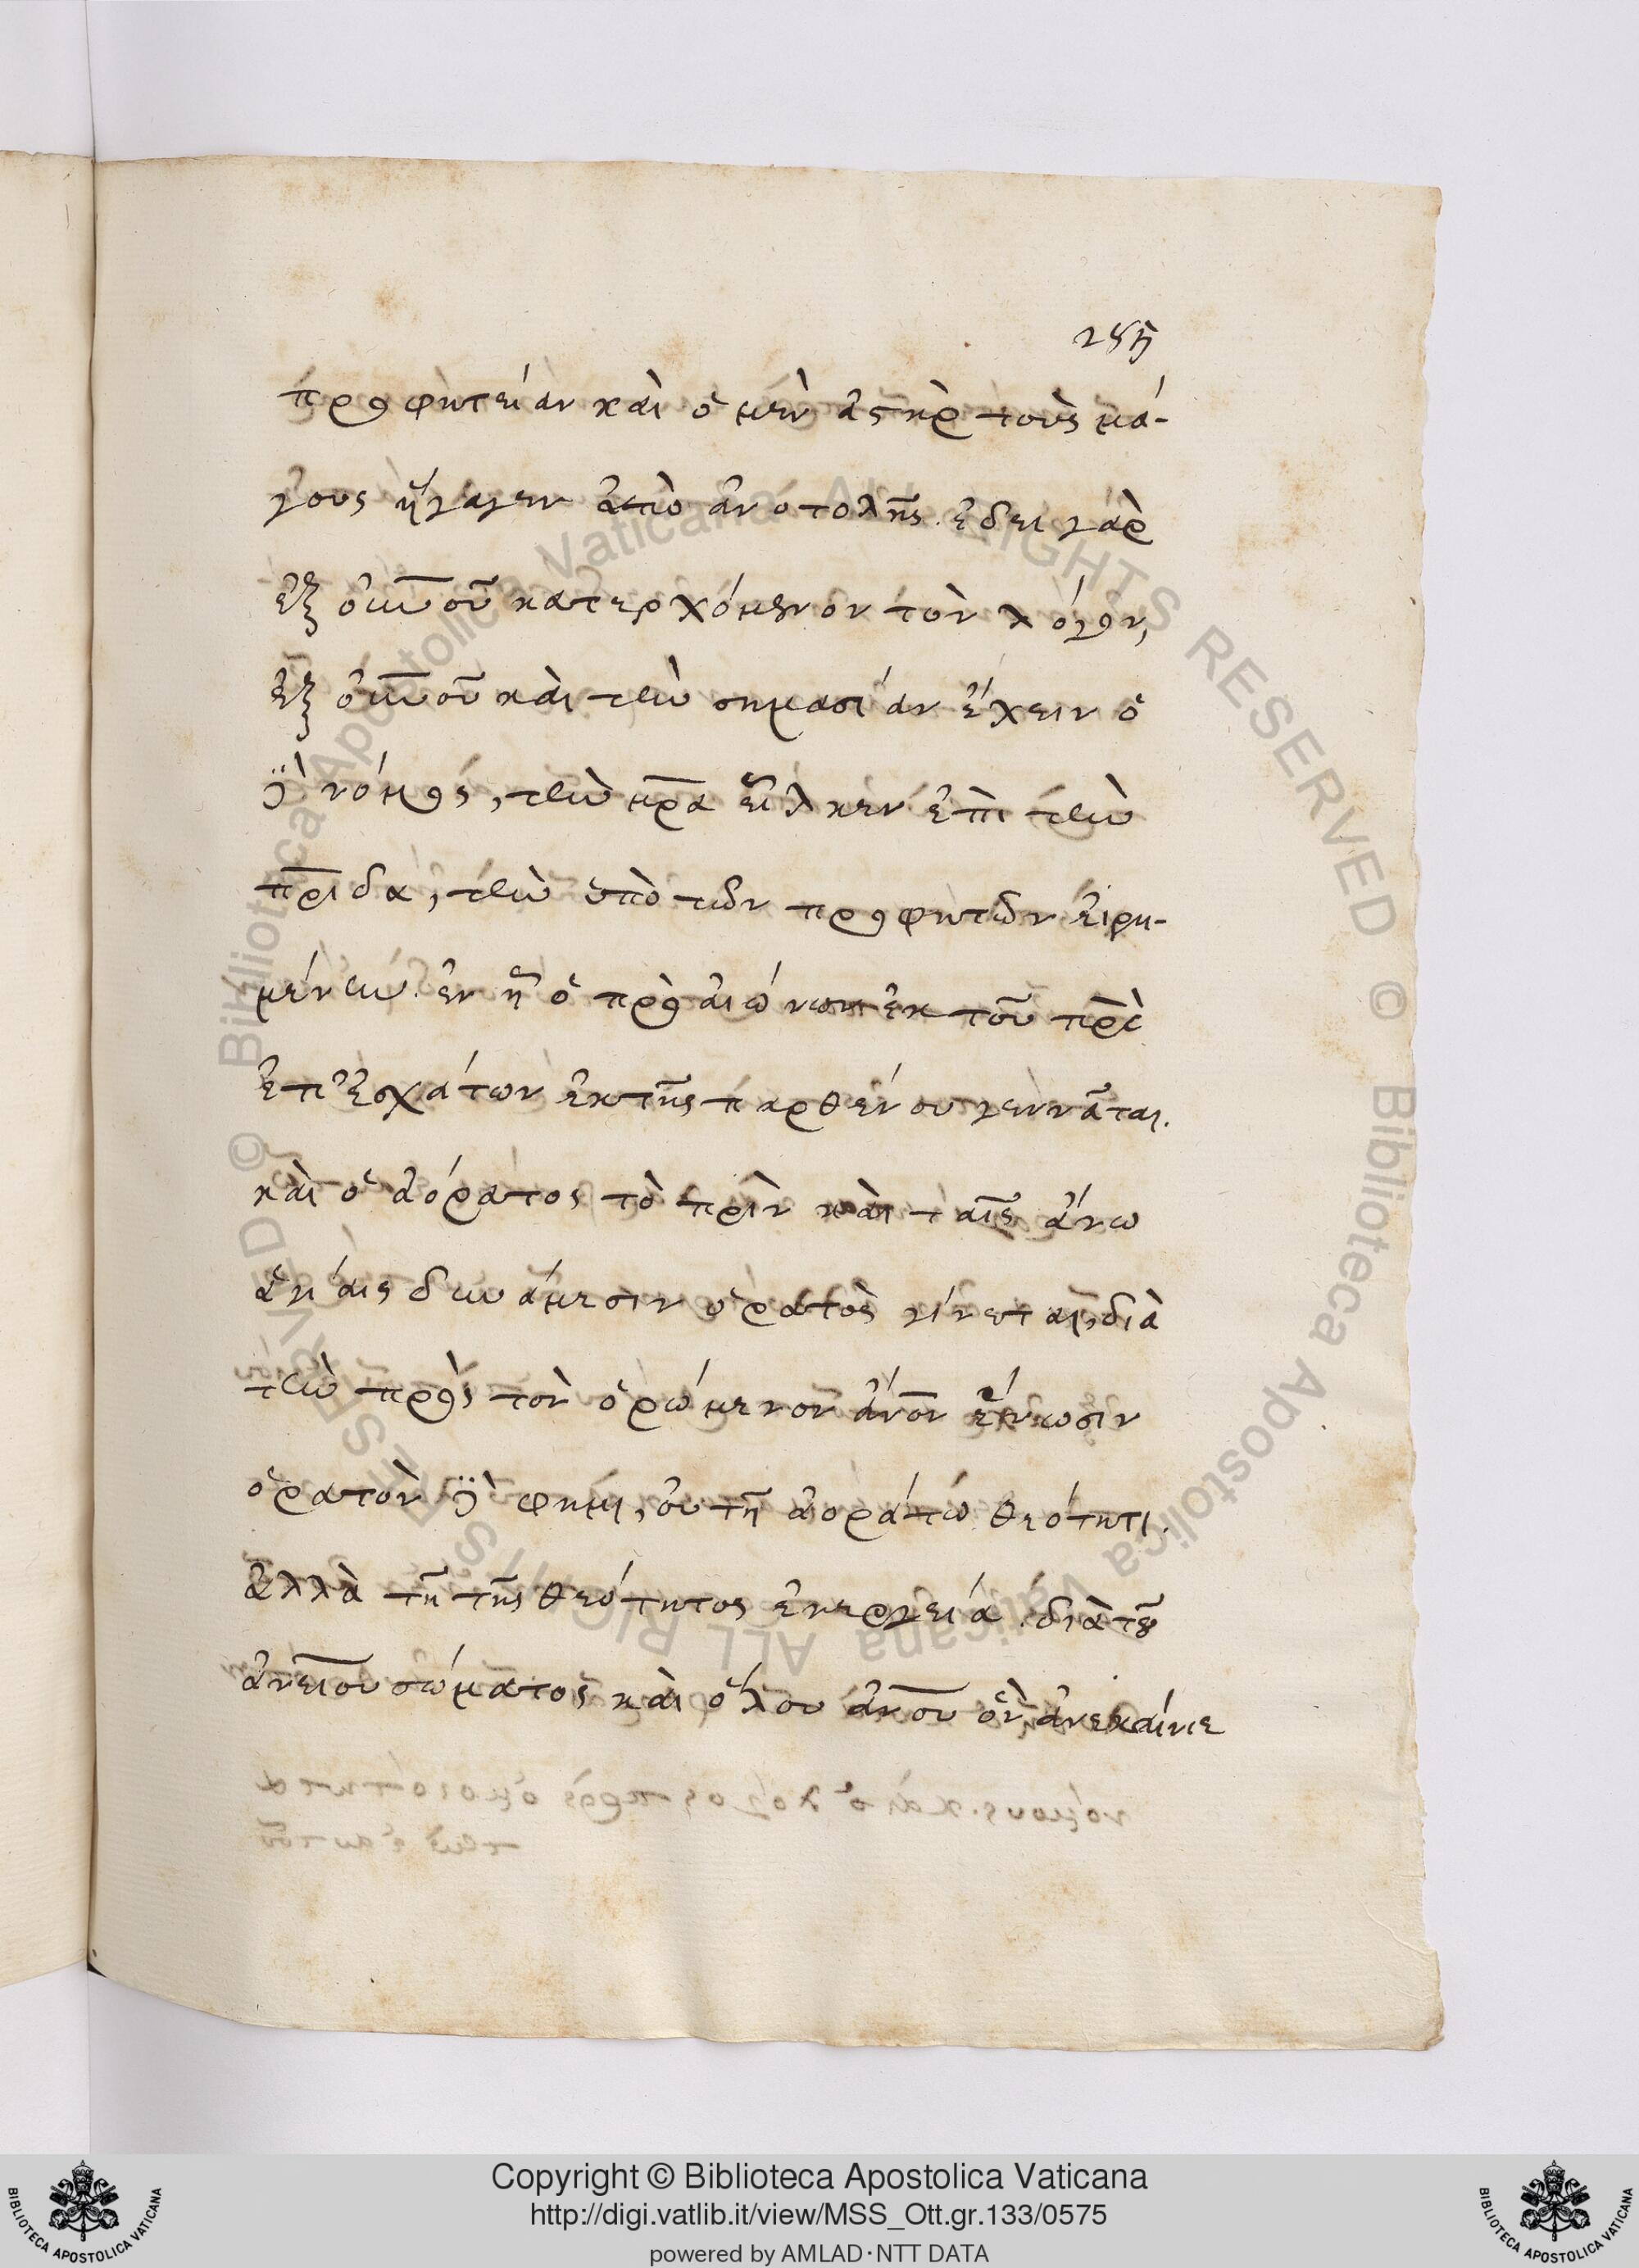 προφητείαν καὶ ὁ μὲν ἀστὴρ τοὺς μά-
γους ἤγαγεν ἀπὸ ἀνατολῆς. ἔδει γὰρ
ἐξ οὐνοῦ κατερχόμενον τὸν λόγον,
ἐξ οὐνοῦ καὶ τὴν σημασίαν ἔχειν ὁ
δὲ νόμος, τὴν μρα εἷλκεν ἐπὶ τὴν
πρίδα, τὴν ὑπὸ τῶν προφητῶν εἰρη-
μένην. ἐν ᾗ ὁ πρὸ αἰώνων ἐκ τοῦ πρς
ἐπ' ἐσχάτων ἐκ τῆς παρθένου γεννᾶται.
καὶ ὁ ἀόρατος τὸ πρὶν καὶ ταῖς ἄνω
ἁγίαις δυνάμεσιν ὁρατὸς γίνεται, διὰ
τὴν πρὸς τὸν ὁρώμενον ἄνον ἕνωσιν
ὁρατὸν δὲ φημι, οὐ τῇ ἀοράτω θεότητι.
ἀλλὰ τῇ τῆς θεότητος ἐνεργεία. διὰ τοῦ
ἀνείου σώματος καὶ ὅλου ἀνου ὃν ἀνεκαίνισε
Copyright © Biblioteca Apostolica Vaticana
http://digi.vatlib.it/view/MSS_Ott.gr.133/0575
powered by AMLAD · NTT DATA
BIBLIOTECA APOSTOLICA VATICANA
BIBLIOTECA APOSTOLICA VATICANA
© Biblioteca Apostolica Vaticana ALL RIGHTS RESERVED
© Biblioteca Apostolica Vaticana ALL RIGHTS RESERVED